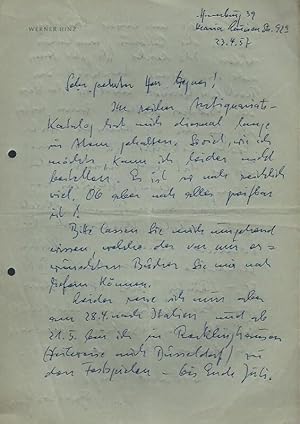 WERNER HINZ
Hamburg 39
Maria Louisen Str.
23.4.57
Sehr geehrter Herr
Ihr Antiquariats-
Katalog hat mich diesmal lange
in Atem gehalten. Soviel, wie ich
möchte, kann ich leider nicht
bestellen. Es ist noch reichlich
viel. Ob aber noch alles greifbar
ist?
Bitte lassen Sie mich umgehend
wissen, welche der von mir er-
wünschten Bücher Sie mir noch
liefern können.
Leider reise ich nun aber
am 28.4. nach Italien und ab
21.5. bin ich in Recklinghausen
(Hinreise nach Düsseldorf) zu
den Festspielen – bis Ende Juli.